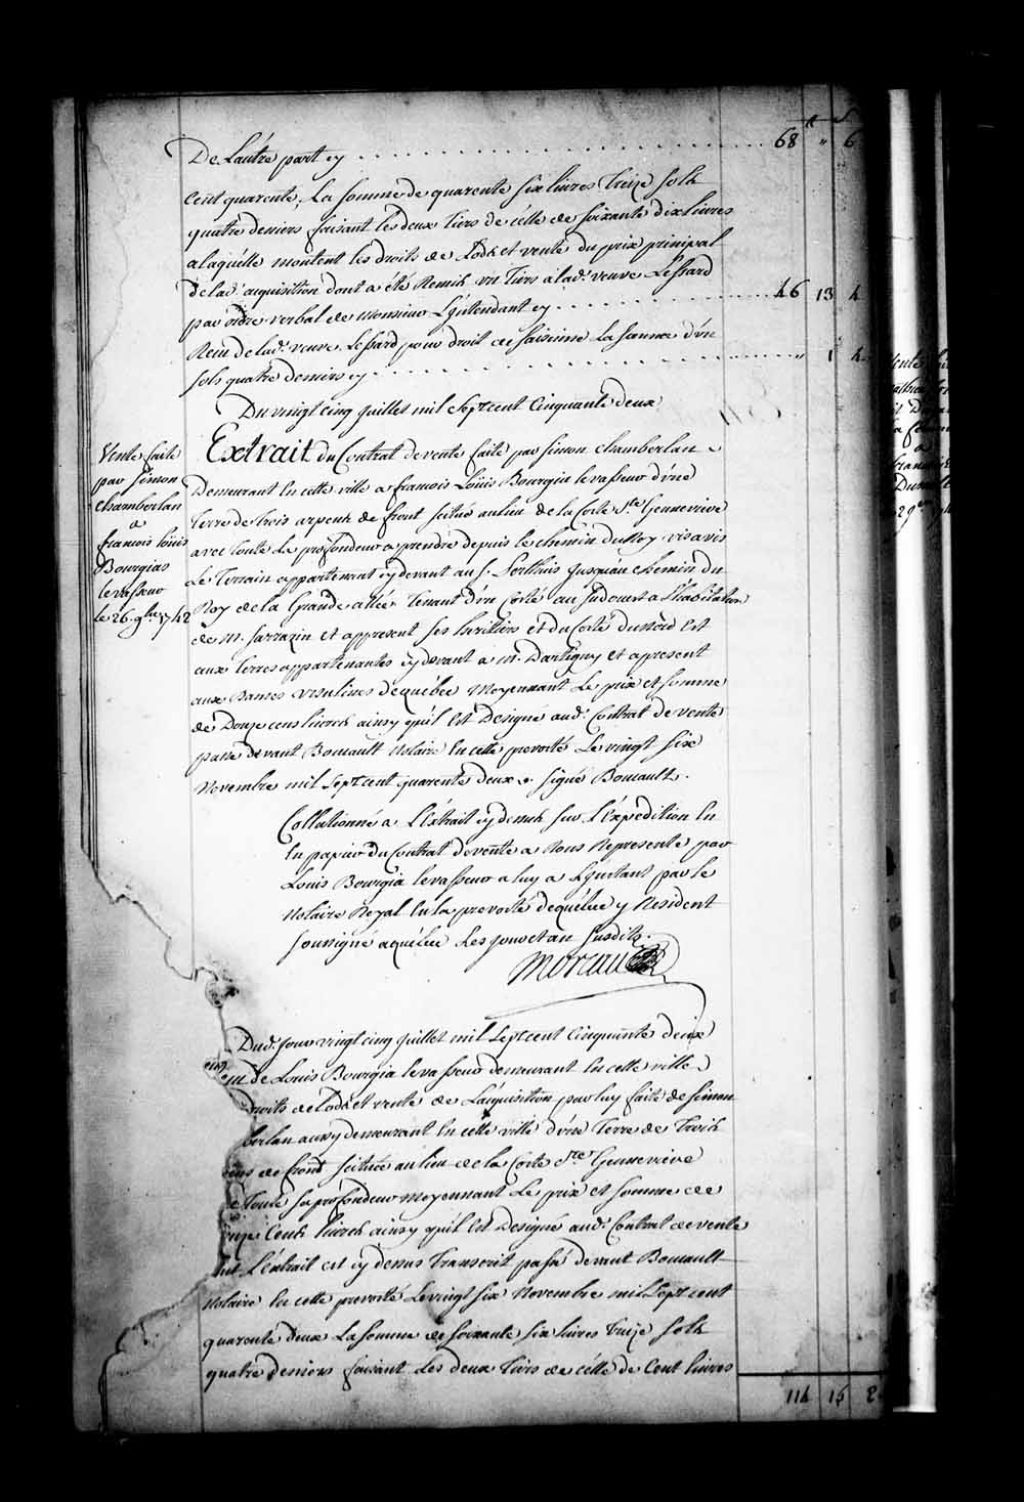 De Lautre part cy . . . . . . . . 68 " 6
Cent quarente, La Somme de quarente Six livres Treize Sols
quatre deniers faisant les deux Tiers de celle de Soixante dix livres
a laquelle montent les droits de Lods et vente du prix prinipal
de lad.e acquisition dont a été Remis un Tiers a lad.e veuve Lessard
par ordre verbal de Monsieur L'jntendant cy . . . . . . . . 46 13 4
Reçu de lad.e veuve Lessard pour droit de Saisinne la Somme d'un
Sols quatre deniers cy . . . . . . . . " 1 4
Du vingt cinq Juillet mil Sept cent Cinquante deux
Vente faite
par Simon
Chamberlan
a
francois Loüis
Bourgias
levasseur
le 26. 9bre 1742
Extrait du Contrat de vente faite par Simon Chamberlan
Demeurant En cette ville a francois Loüis Bourgia levasseur d'une
Terre de trois arpents de front Scitué au lieu de la Coste Ste Genneviève
avec toute La profondeur a prendre depuis le chemin du Roy vis avis
Le Terrain appartenant cy devant au S. Jusquau chemin du
Roy de la Grande allée Tenant d'un Costé au Sudouest a L'habitation
de M. Sarrazin et appresent Ses heritiers et du Costé du nord Est
aux Terres appartenantes cy devant a M. Dartigny et apresent
aux Dames Ursulines de quebec Moyennant Le prix et Somme
de Douze cens livres ainsy qu'il Est Designé aud. Contrat de vente
passé devant Boucault Notaire En cette prevosté Le vingt Six
Novembre mil Sept cent quarente deux. Signé Boucault.
Collationné a L'Extrait cy dessus Sur L'Expedition En
En papier du Contrat de vente a Nous Representé par
Louis Bourgia levasseur a luy a L'jnstant par le
Notaire Royal En la prevosté de quebec y Resident
Soussigné a quebec Les jour et an Susdits.
Moreau
Dud. jour vingt cinq Juillet mil Sept cent Cinquante deux
de Louis Bourgia levasseur demeurant En cette ville
Droits de Lods et vente de L'acquisition par luy faite de Simon
berlan aussy demeurant En cette ville d'une Terre de Trois
de front Scituée au lieu de la Coste Ste Genneviève
Toute Sa profondeur moyennant Le prix et Somme de
Cents livres ainsy qu'il Est Designé aud. Contrat de vente
L'extrait est cy dessus Transcrit passé devant Boucault
Notaire En cette prevosté Le vingt Six Novembre mil Sept cent
quarente deux La Somme de Soixante Six livres Treize Sols
quatre deniers faisant Les deux Tiers de celle de Cent livres
114 15 2